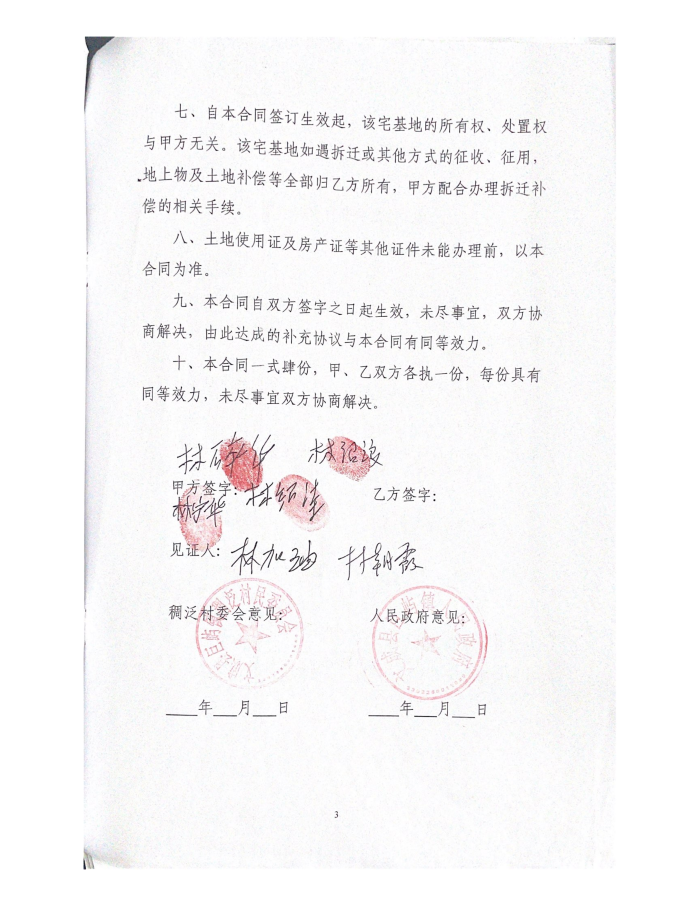 七、自本合同签订生效起，该宅基地的所有权、处置权
与甲方无关。该宅基地如遇拆迁或其他方式的征收、征用，
地上物及土地补偿等全部归乙方所有，甲方配合办理拆迁补
偿的相关手续。
八、土地使用证及房产证等其他证件未能办理前，以本
合同为准。
九、本合同自双方签字之日起生效，未尽事宜，双方协
商解决，由此达成的补充协议与本合同有同等效力。
十、本合同一式肆份，甲、乙双方各执一份，每份具有
同等效力，未尽事宜双方协商解决。
甲方签字：
乙方签字：
见证人：
稠泛村委会意见：
人民政府意见：
____年___月___日
____年___月___日
3